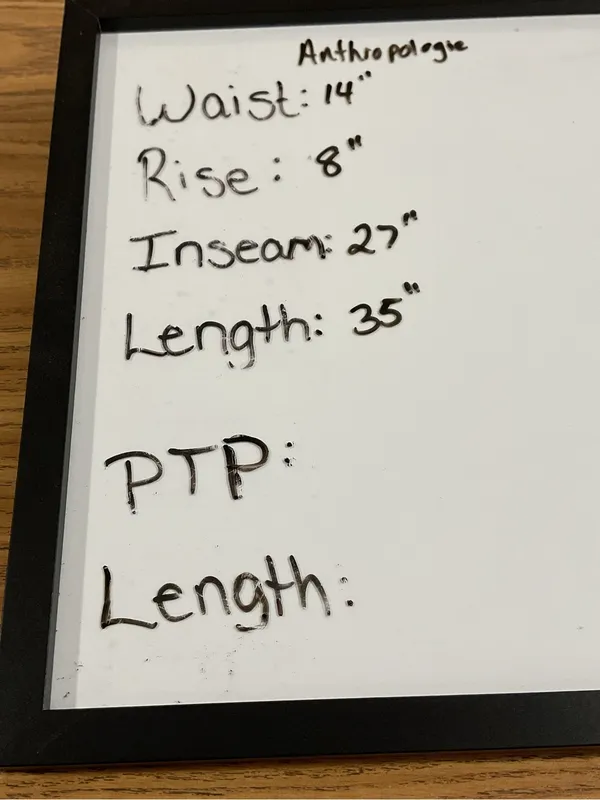 Anthropologie
Waist: 14"
Rise: 8"
Inseam: 27"
Length: 35"
PTP:
Length: